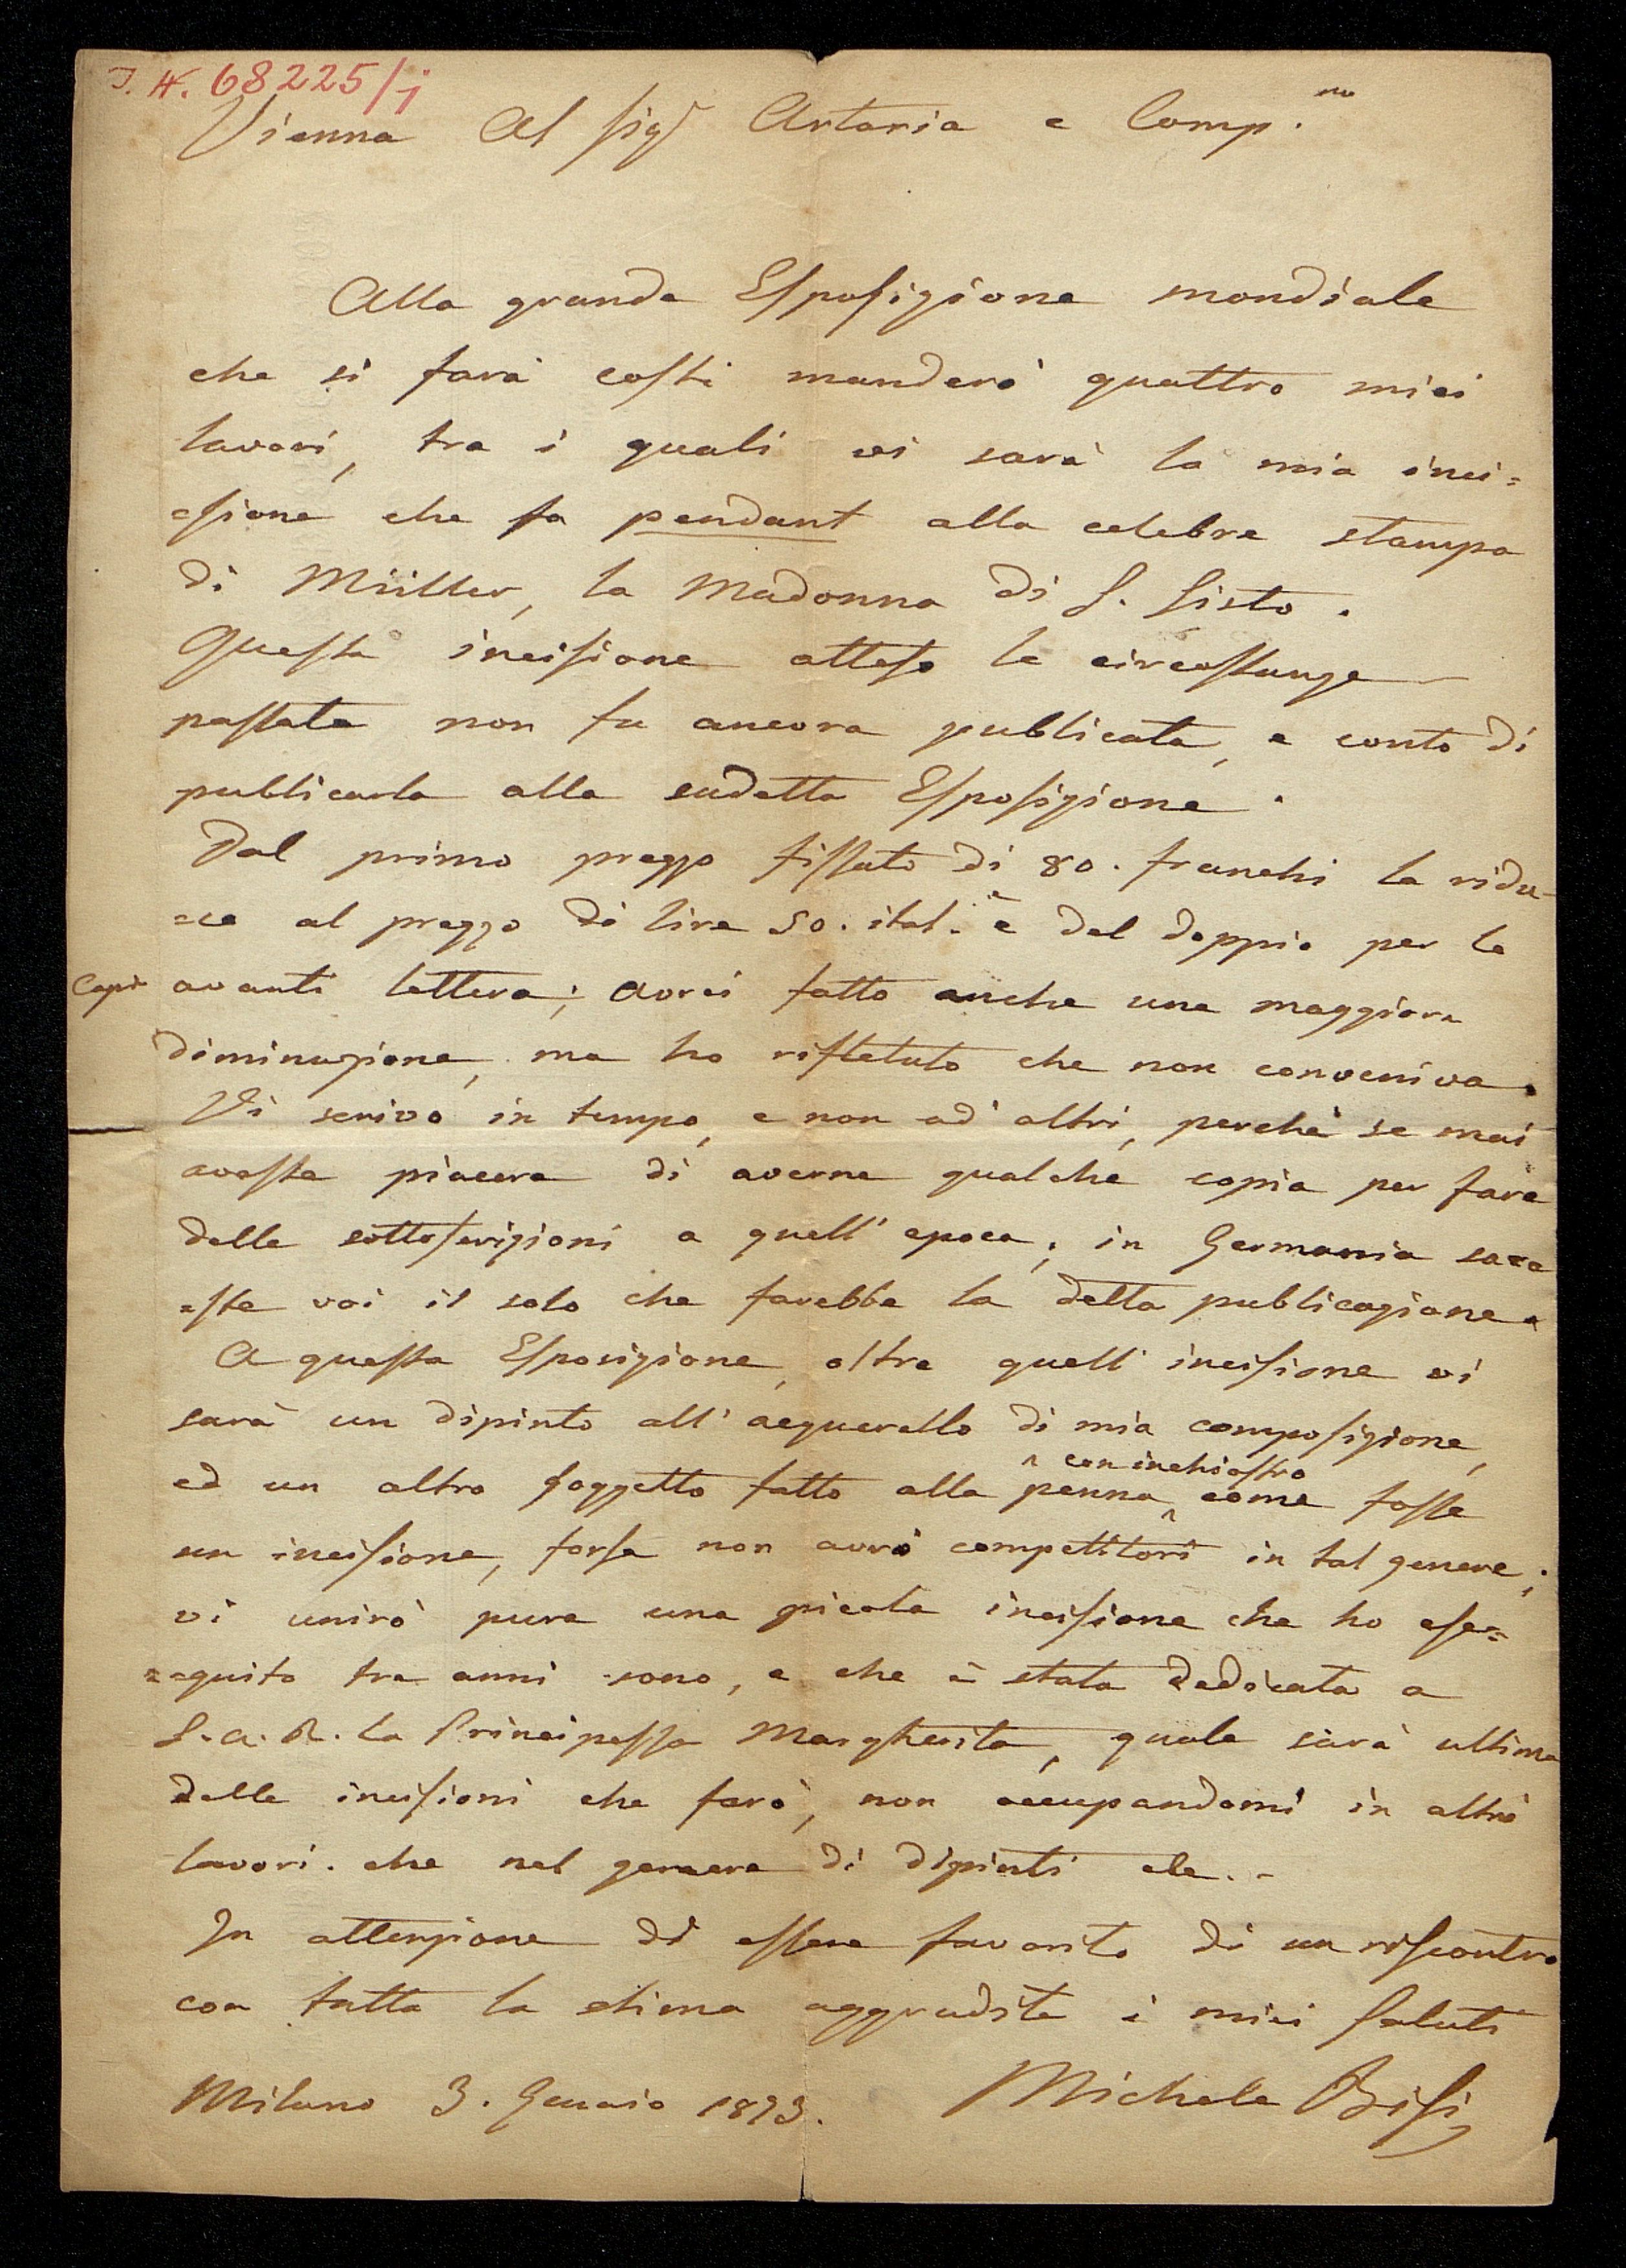 I. N. 68225/j
Vienna Al Sigr Artaria e Comp.
Alla grande Esposizione mondiale
che si farà costì manderò quattro miei
lavori, tra i quali vi sarà la mia inci=
=sione che fa pendant alla celebre stampa
di Müller, la Madonna di S. Sisto.
Questa incisione atteso le circostanze
passate non fu ancora publicata, e conto di
publicarla alla sudetta Esposizione.
Dal primo prezzo fissato di 80. franchi la ridu-
=ce al prezzo di lire 50. ital.e e del doppio per le
Copie avanti lettera; avrei fatto anche una maggiore
diminuzione, ma ho rifletuto che non conveniva.
Vi scrivo in tempo, e non ad altri, perchè se mai
aveste piacere di averne qualche copia per fare
delle sottoscrizioni a quell'epoca, in Germania sare
=ste voi il solo che farebbe la detta publicazione.
A questa Esposizione, oltre quell'incisione vi
sarà un dipinto all'acquerello di mia composizione,
con inchiostro
ed un altro soggetto fatto alla penna come fosse
un incisione, forse non avrò competitori in tal genere;
vi unirò pure una picola incisione che ho ese=
=guito tre anni sono, e che è stata dedicata a
S. A. R. la Principessa Margherita, quale sarà ultima
delle incisioni che farò, non occupandomi in altri
lavori che nel genere di dipinti etc. -
In attenzione di essere favorito di un riscontro
con tutta la stima aggradite i miei saluti
Milano 3. Genaio 1873. Michele Bisi